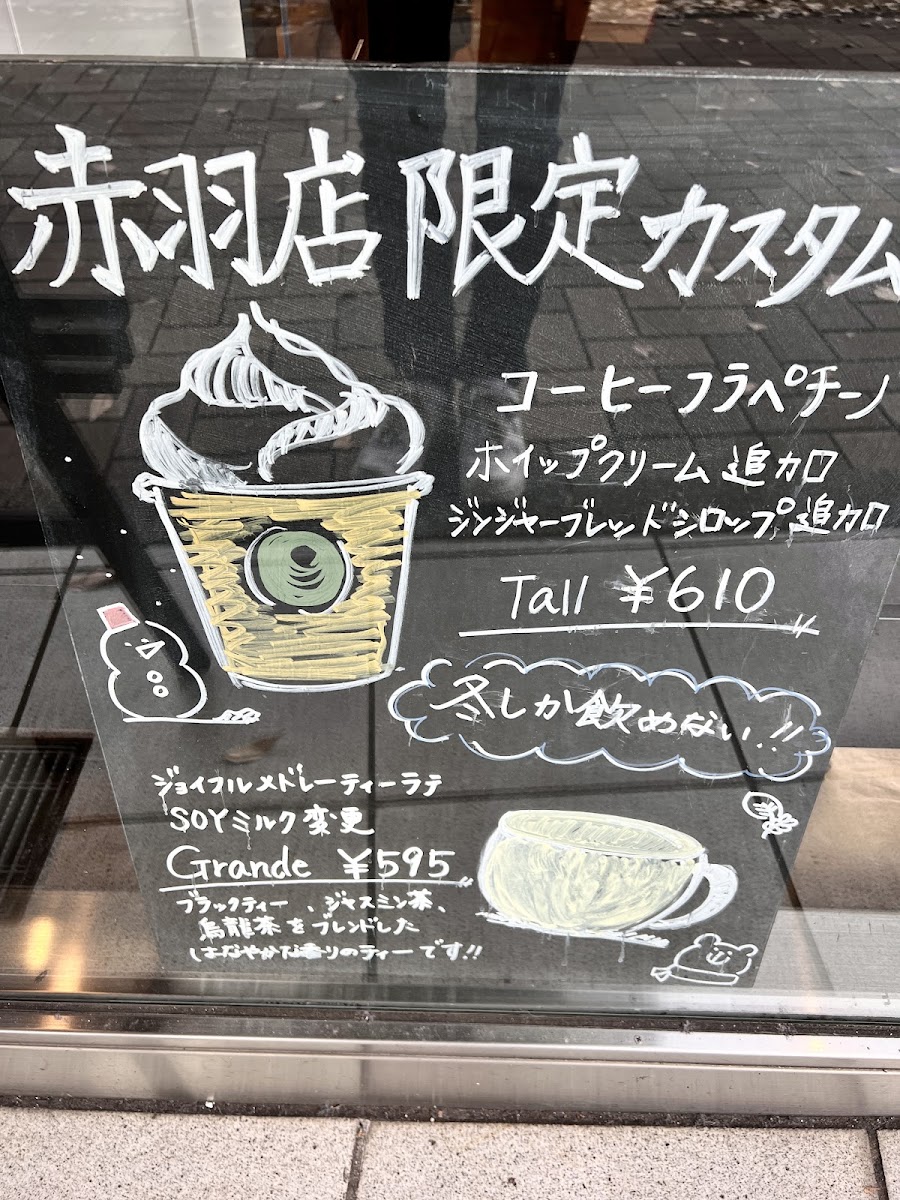 赤羽店 限定 カスタム
コーヒーフラペチーノ
ホイップクリーム 追加
ジンジャーブレッドシロップ 追加
Tall ¥610
冬しか飲めない!!
ジョイフルメドレーティーラテ
SOYミルク変更
Grande ¥595
ブラックティー、ジャスミン茶、
烏龍茶をブレンドした
はなやかな香りのティーです!!